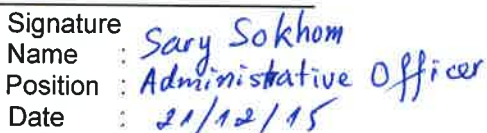 Signature
Name : Sary Sokhom
Position : Administrative Officer
Date : 21/12/15